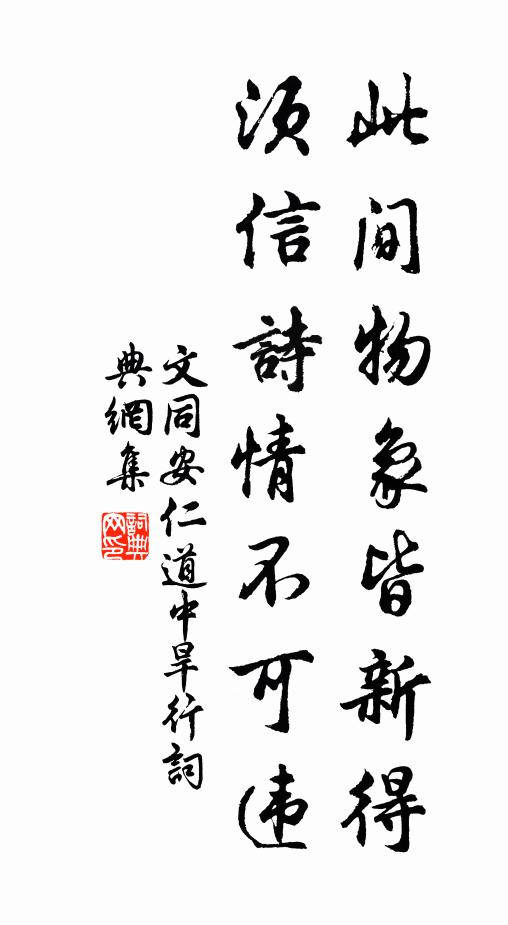 此间物象皆新得
须信詩情不可违
文同安仁道中旱行詞
典網集
詞典
网印